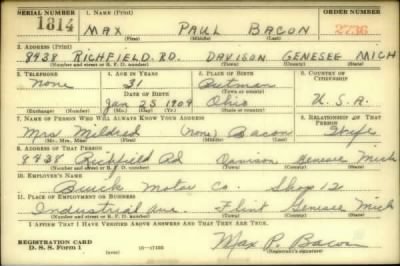 SERIAL NUMBER 1. NAME (Print) ORDER NUMBER
1814 MAX PAUL BACON 2736
(First) (Middle) (Last)
2. ADDRESS (Print)
8438 RICHFIELD. RD. DAVISON GENESEE MICH
(Number and street or R. F. D. number) (Town) (County) (State)
3. TELEPHONE 4. AGE IN YEARS 5. PLACE OF BIRTH 6. COUNTRY OF CITIZENSHIP
None 31
DATE OF BIRTH (Town or county)
Jan 25 1909 Ohio U. S. A.
(Exchange) (Number) (Mo.) (Day) (Yr.) (State or country)
7. NAME OF PERSON WHO WILL ALWAYS KNOW YOUR ADDRESS 8. RELATIONSHIP OF THAT PERSON
Mrs Mildred (None) Bacon Wife
(Mr., Mrs., Miss) (First) (Middle) (Last)
9. ADDRESS OF THAT PERSON
8438 Richfield Rd Davison Genesee Mich
(Number and street or R. F. D. number) (Town) (County) (State)
10. EMPLOYER'S NAME
Buick Motor Co. Shop 12
11. PLACE OF EMPLOYMENT OR BUSINESS
Industrial Ave. Flint Genesee Mich
(Number and street or R. F. D. number) (Town) (County) (State)
I AFFIRM THAT I HAVE VERIFIED ABOVE ANSWERS AND THAT THEY ARE TRUE.
REGISTRATION CARD
D. S. S. Form 1 Max P. Bacon
(Registrant's signature)